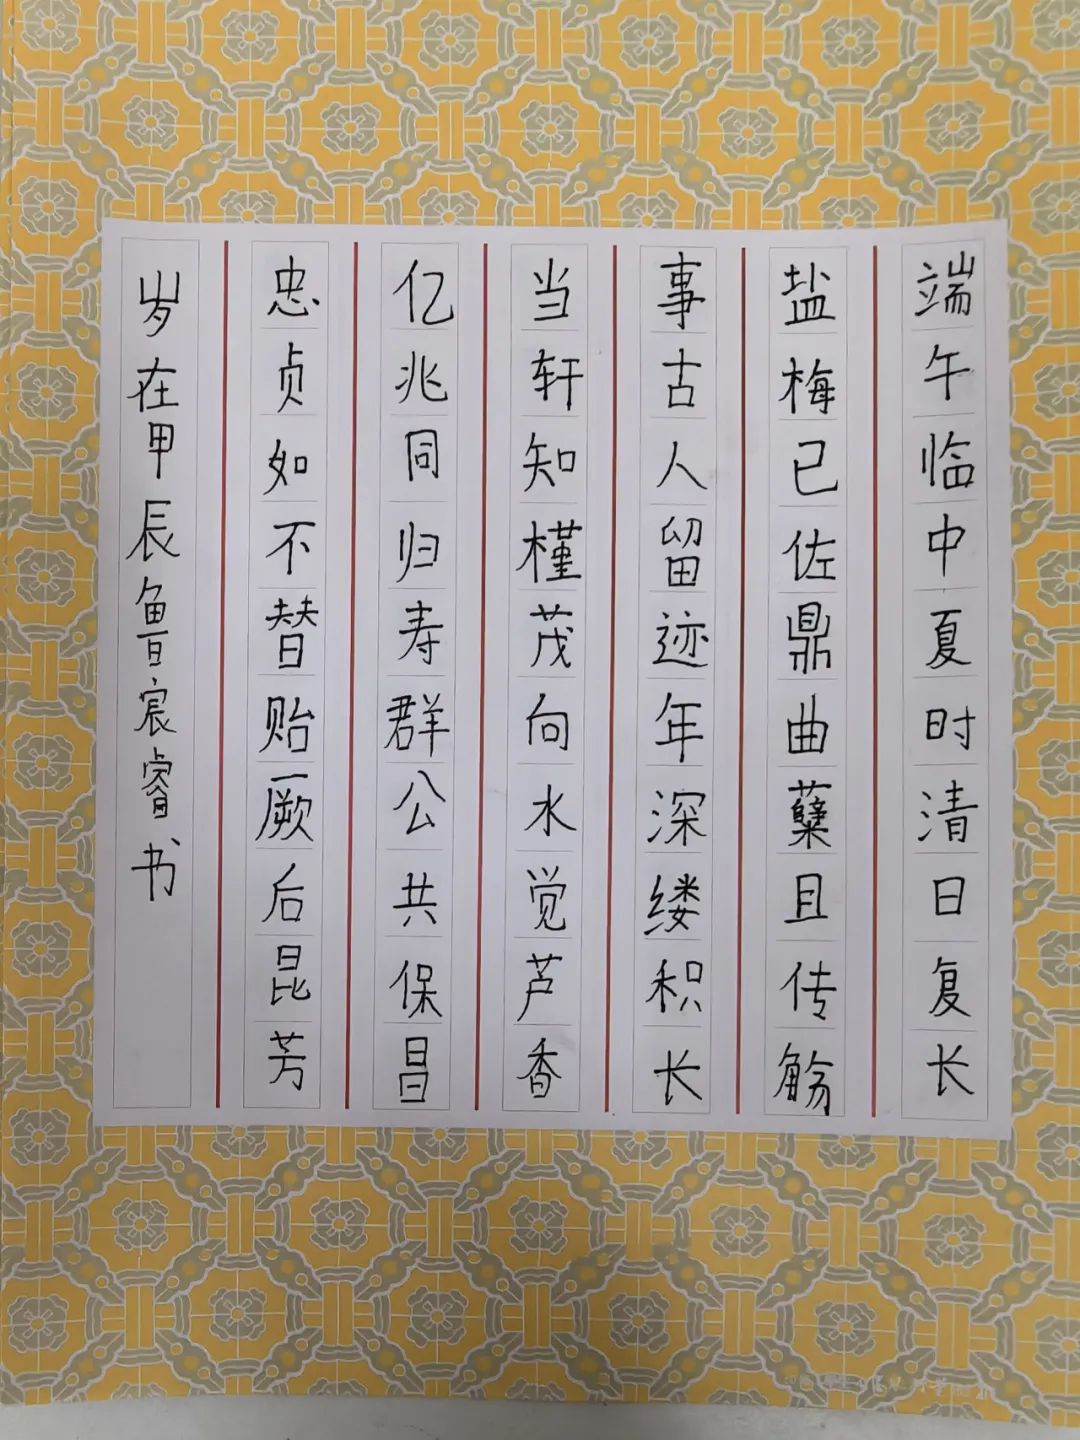 端午临中夏时清日复长
盐梅已佐鼎曲蘖且传觞
事古人留迹年深缕积长
当轩知槿茂向水觉芦香
亿兆同归寿群公共保昌
忠贞如不替贻厥后昆芳
岁在甲辰鲁宸睿书